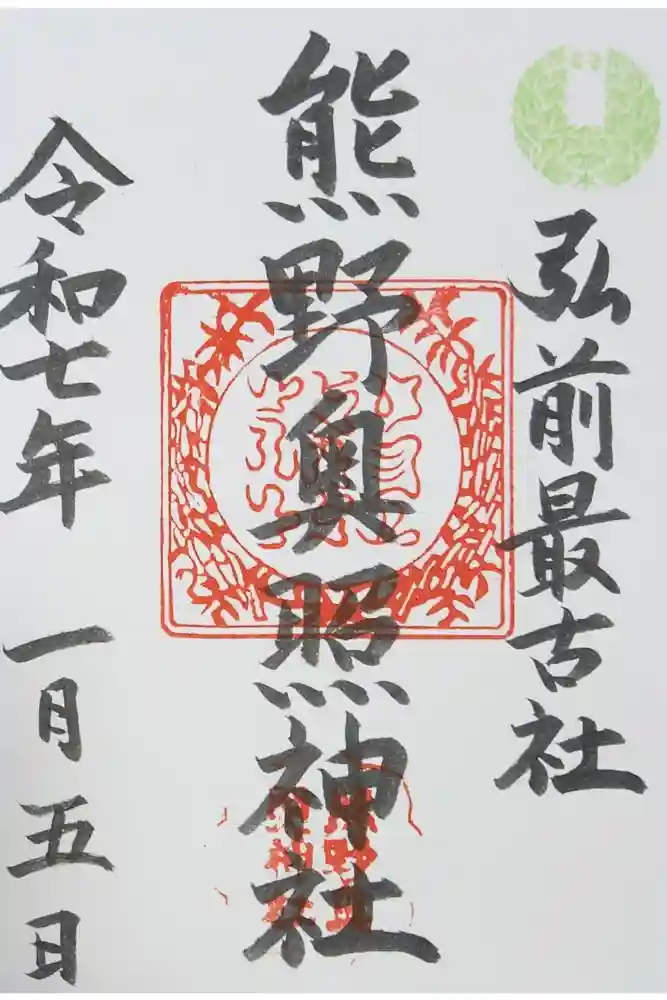 弘前最古社
熊野奥照神社
令和七年 一月五日